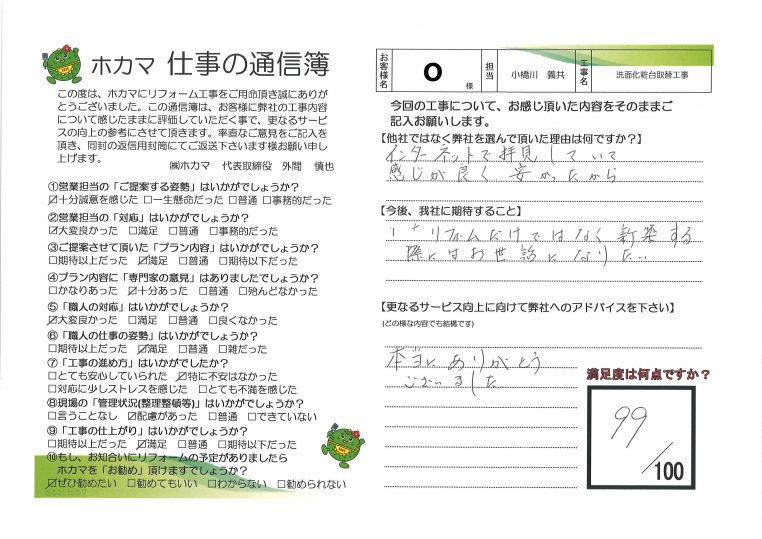 ホカマ 仕事の通信簿
この度は、ホカマにリフォーム工事をご用命頂き誠にありが
とうございました。この通信簿は、お客様に弊社の工事内容
について感じたままに評価していただく事で、更なるサービ
スの向上の参考にさせて頂きます。率直なご意見をご記入を
頂き、同封の返信用封筒にてご返送下さいます様お願い申し
上げます。
㈱ホカマ 代表取締役 外間 慎也
①営業担当の「ご提案する姿勢」はいかがでしょうか?
☑十分誠意を感じた □一生懸命だった □普通 □事務的だった
②営業担当の「対応」はいかがでしょうか?
☑大変良かった □満足 □普通 □事務的だった
③ご提案させて頂いた「プラン内容」はいかがでしょうか?
□期待以上だった ☑満足 □普通 □期待以下だった
④プラン内容に「専門家の意見」はありましたでしょうか?
□かなりあった ☑十分あった □普通 □殆んどなかった
⑤「職人の対応」はいかがでしょうか?
☑大変良かった □満足 □普通 □良くなかった
⑥「職人の仕事の姿勢」はいかがでしょうか?
□期待以上だった ☑満足 □普通 □雑だった
⑦「工事の進め方」はいかがでしたか?
□とても安心していられた ☑特に不安はなかった
□対応に少しストレスを感じた □とても不満を感じた
⑧現場の「管理状況(整理整頓等)」はいかがでしょうか?
□言うことなし ☑配慮があった □普通 □できていない
⑨「工事の仕上がり」はいかがでしょうか?
□期待以上だった ☑満足 □普通 □期待以下だった
⑩もし、お知合いにリフォームの予定がありましたら
ホカマを「お勧め」頂けますでしょうか?
☑ぜひ勧めたい □勧めてもいい □わからない □勧められない
お客様名 O 様 担当 小橋川 義共 工事名 洗面化粧台取替工事
今回の工事について、お感じ頂いた内容をそのままご
記入お願いします。
【他社ではなく弊社を選んで頂いた理由は何ですか?】
インターネットで拝見していて
感じが良く 安かったから
【今後、我社に期待すること】
リフォームだけではなく新築する
際にはお世話になりたい
【更なるサービス向上に向けて弊社へのアドバイスを下さい】
(どの様な内容でも結構です)
本当にありがとう
ございました
満足度は何点ですか?
99/100